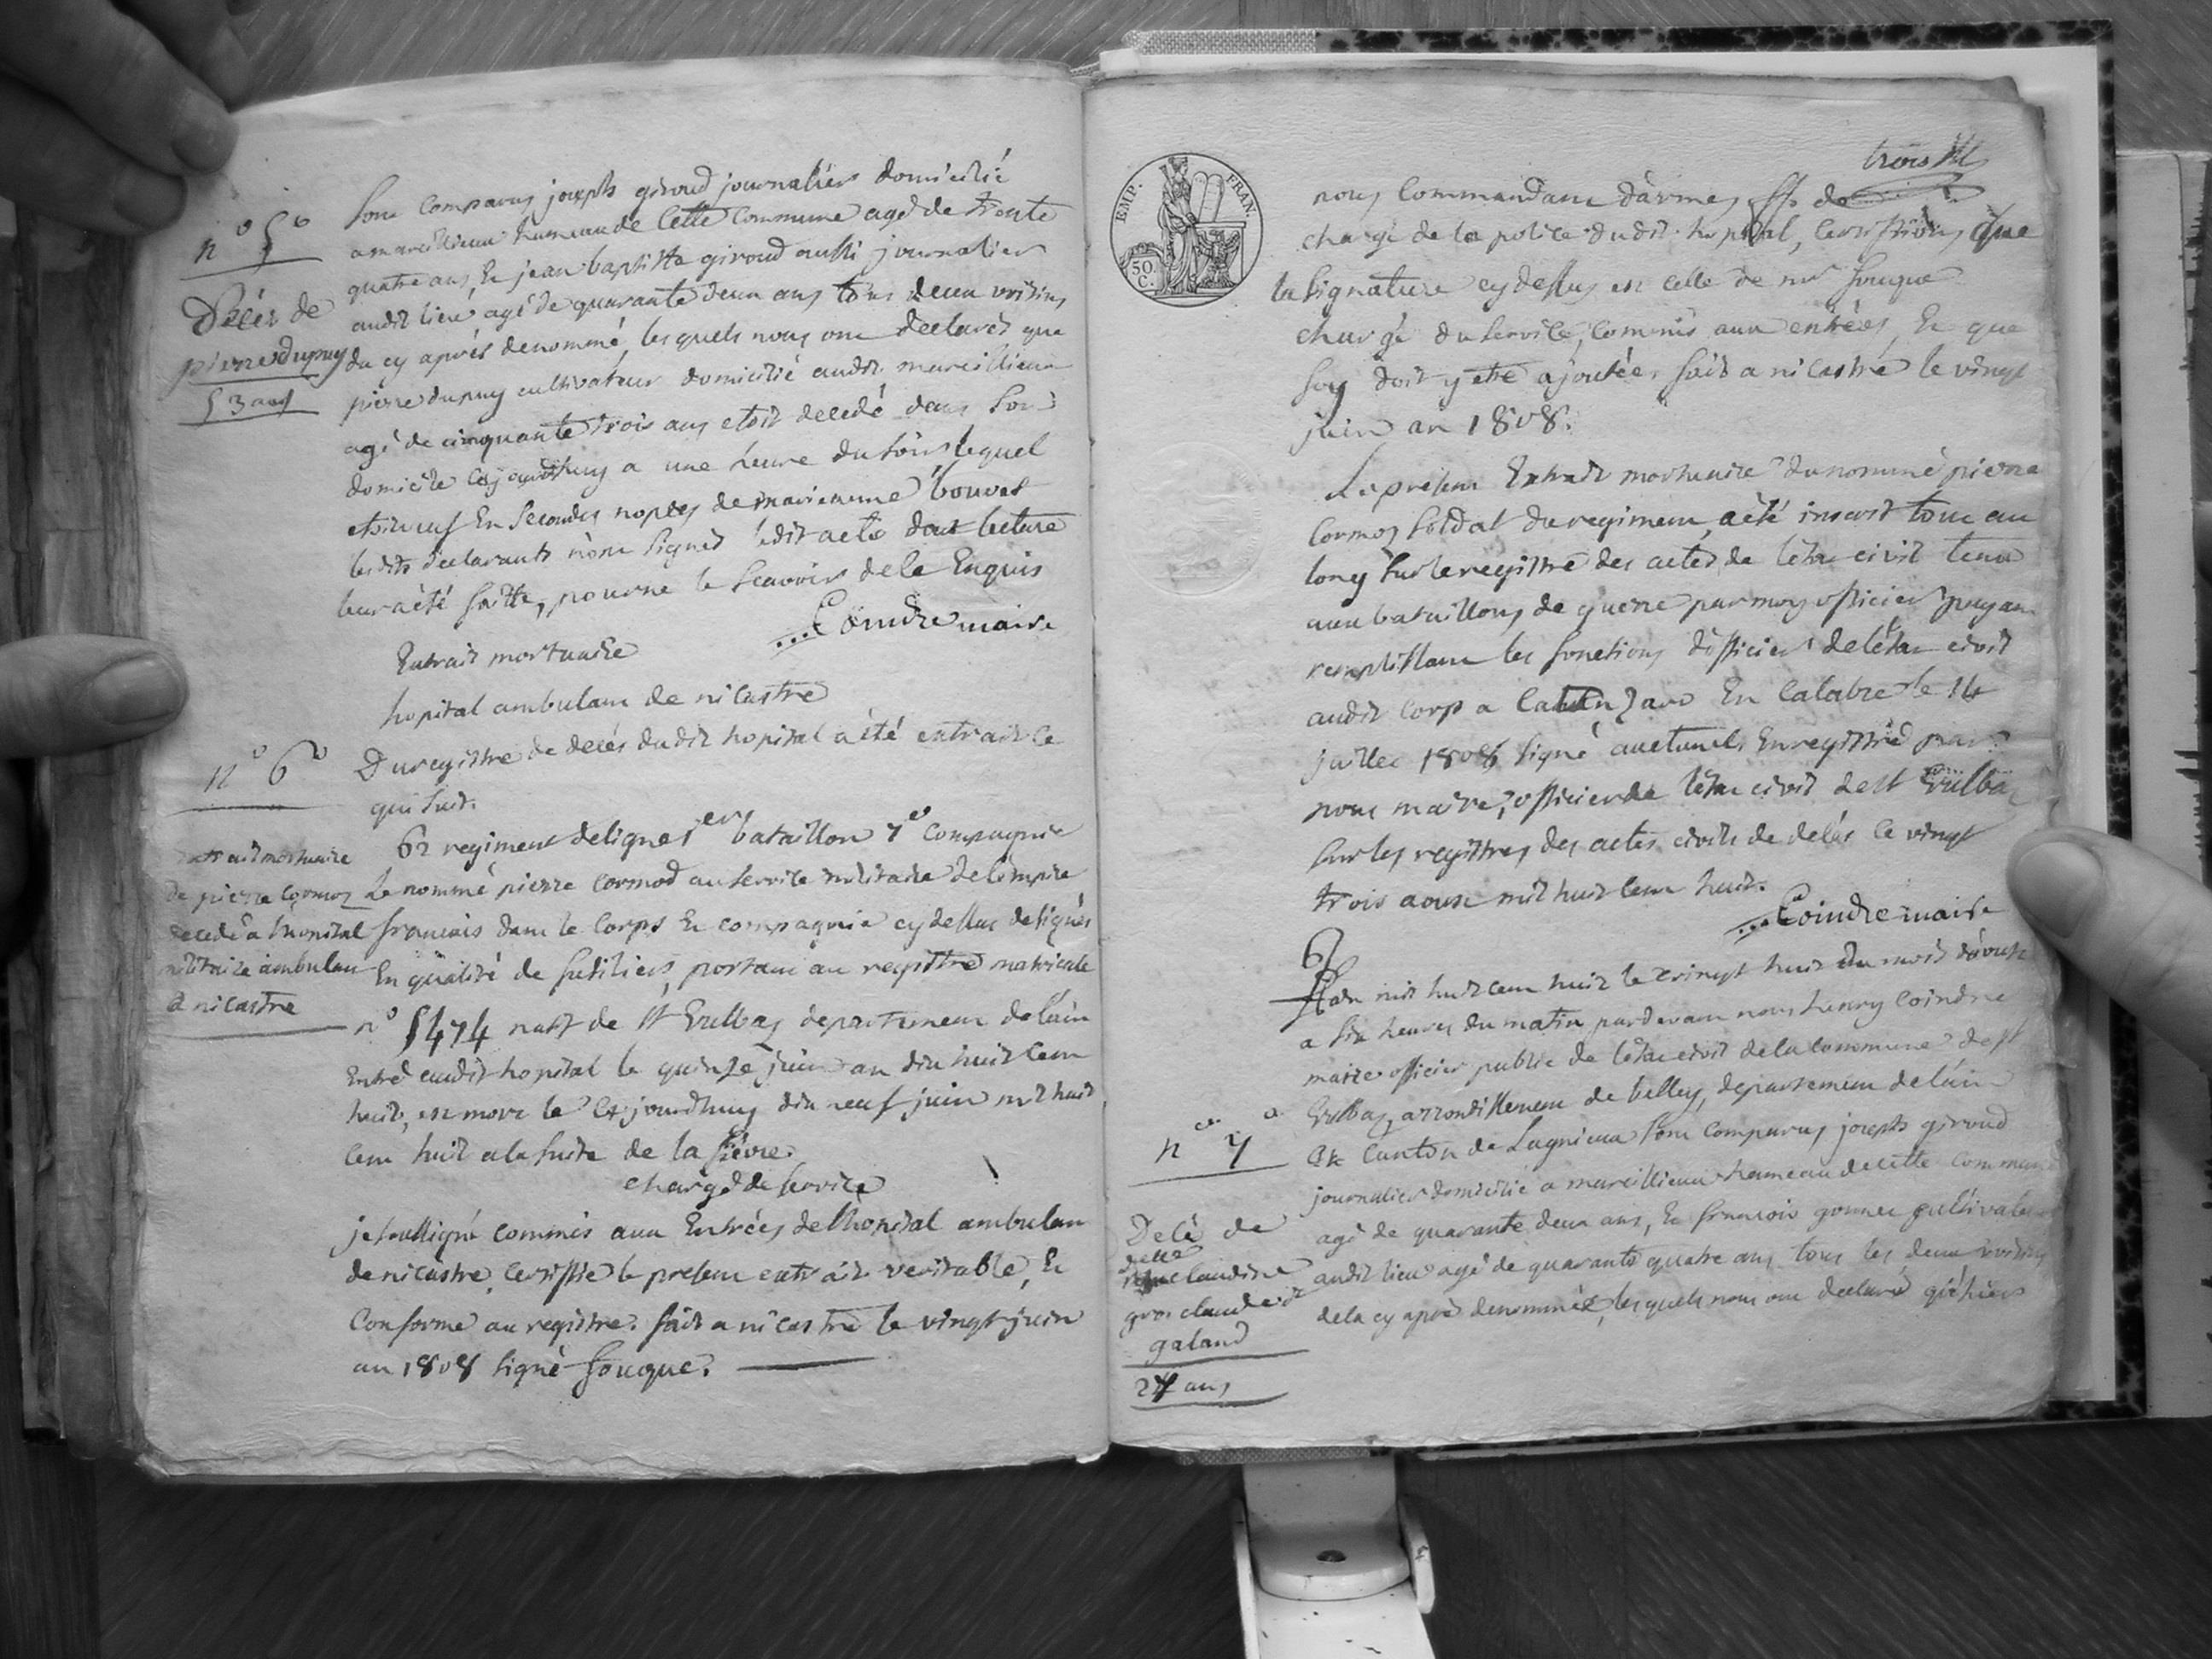 n° 5°
Décés de
pierre dupuy
53 ans
Sont Comparus joseph giroud journalier domicilié
a mareillieux hameau de Cette Commune agé de trente
quatre ans, Et jean baptiste giroud aussi journalier
audit lieu, agé de quarante deux ans tous deux voisins
du cy aprés denommé, lesquels nous ont declarés que
pierre dupuy cultivateur domicilié audit mareillieux
agé de cinquante trois ans etoit decedé dans Son
domicile cejourdhuy a une heure du soir lequel
etoit veuf En Secondes nopces de marieanne bouvet
lesdits declarants n'ont Signés ledit acte dont lecture
leur a été faitte, pour ne le Scavoir de le Enquis
Coindre maire
Extrait mortuaire
hopital ambulant de nicastre
n° 6°
Extrait mortuaire
de pierre Cormoz
decedé a lhopital
militaire ambulant
a nicastre
Du registre de decés dudit hopital a été extrait ce
qui suit.
62 regiment de ligne 1er bataillon 7e Compagnie
Le nommé pierre Cormod au Service militaire de lempire
francais dans le Corps Et compagnie cy dessus designés
En qualité de fusiliers, portant au registre matricule
n° 5474 natif de St Vulbas departement de lain
Entré audit hopital le quinze juin an dix huit Cent
huit, est mort le Cejourdhuy dix neuf juin mil huit
Cent huit a la suite de la fievre.
chargé de Service
je soussigné Commis aux Entrées de lhopital ambulant
de nicastre, Certiffie le present extrait veritable, Et
Conforme au registre. fait a nicastre le vingt juin
an 1808 Signé fouque.
EMP. FRAN.
50 C.
trois
nous Commandant d'armes de
chargé de la police dudit hopital, Certiffions que
la Signature cy dessus est celle de mr fouque
chargé du Service, Commis aux entrées, Et que
foy doit y etre ajoutée, fait a nicastre le vingt
juin an 1808.
Le present Extrait mortuaire du nommé pierre
Cormoz Soldat du regiment, a été inscrit tout au
long Sur le registre des actes de létat civil tenu
aux bataillons de guerre par moy officier payant
remplissant les fonctions d'officier de létat civil
audit Corp a Catanzaro En Calabre le 14
juillet 1808 Signé Enregistré par
nous maire, officier de létat civil de St Vulbas
Sur les registres des actes civils de decés ce vingt
trois aoust mil huit Cent huit.
Coindre maire
n° 7°
Decé de
delle
claudine
gros claude dt
galand
27 ans
Lan mil huit Cent huit le vingt huit du mois d'aoust
a Six heures du matin, pardevant nous henry Coindre
maire officier public de létat civil de la Commune de St
Vulbas, arrondissement de belley, departement de lain
Et Canton de Lagnieux Sont Comparus joseph giroud
journalier domicilié a mareillieux hameau de cette Commune
agé de quarante deux ans, Et francois gonnet cultivateur
audit lieu agé de quarante quatre ans tous les deux voisins
de la cy apre denommée, lesquels nous ont declaré qu'hier